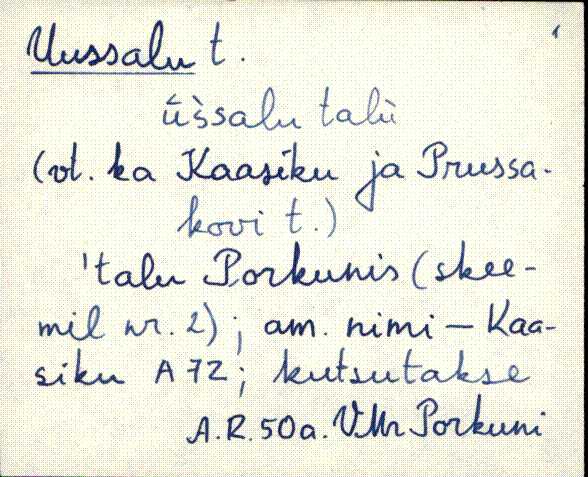 Uussalu t.
ùs̀salu talù
(vt. ka Kaasiku ja Prussa-
kovi t.)
'talu Porkunis (skee-
mil nr. 2); am. nimi – Kaa-
siku A 72; kutsutakse
A.R. 50a. VMr Porkuni